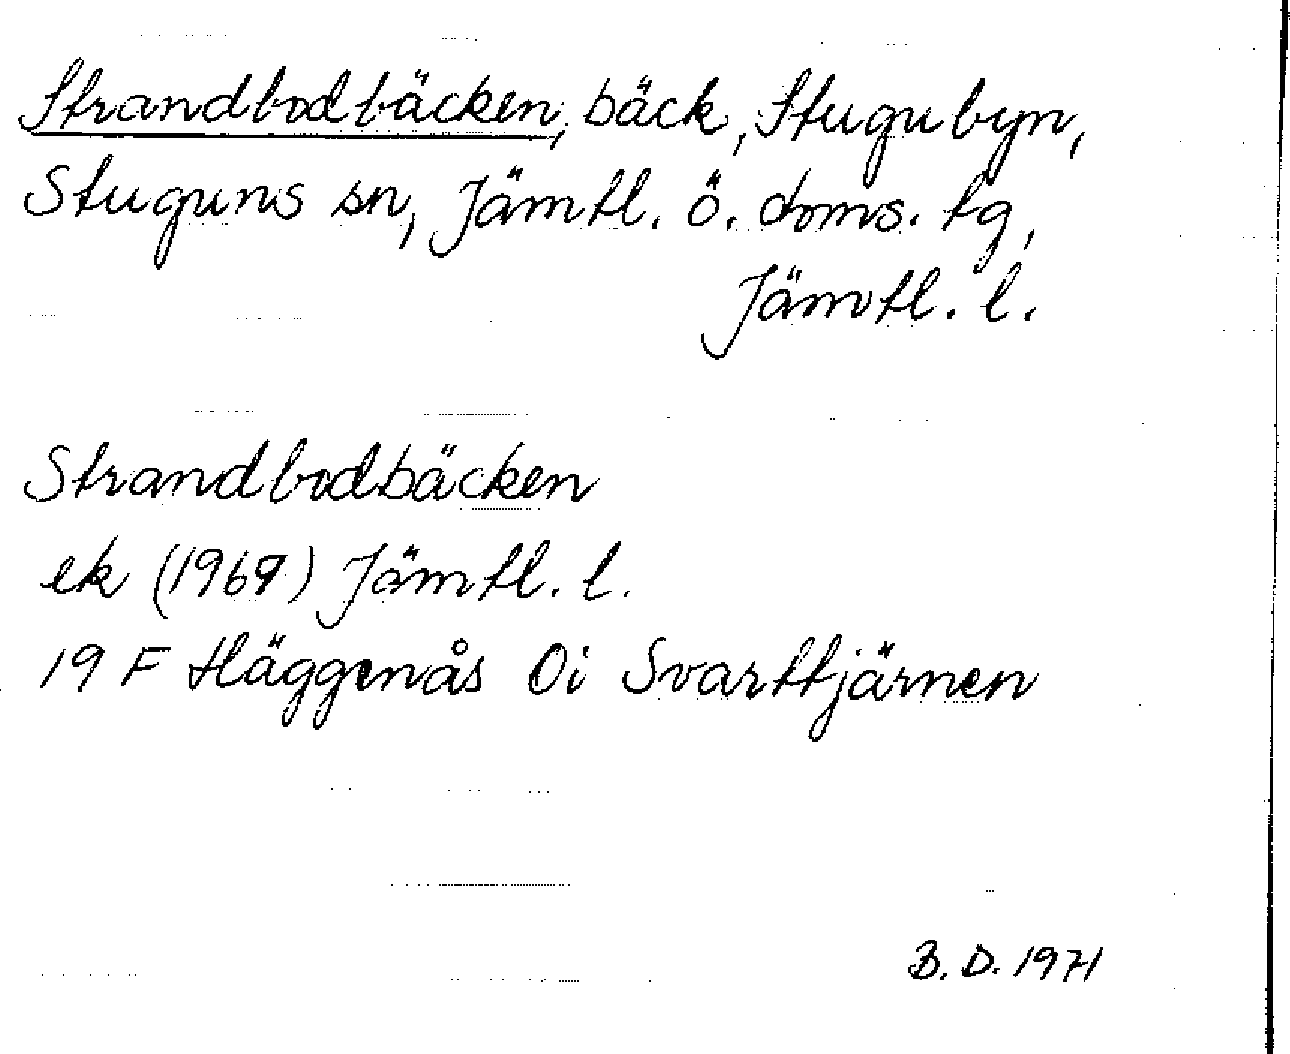 Strandbodbäcken, bäck, Stugubyn,
Stuguns sn, Jämtl. ö. doms. tg,
Jämtl. l.
Strandbodbäcken
ek (1969) Jämtl. l.
19 F Häggenås Oi Svarttjärnen
B. D. 1971